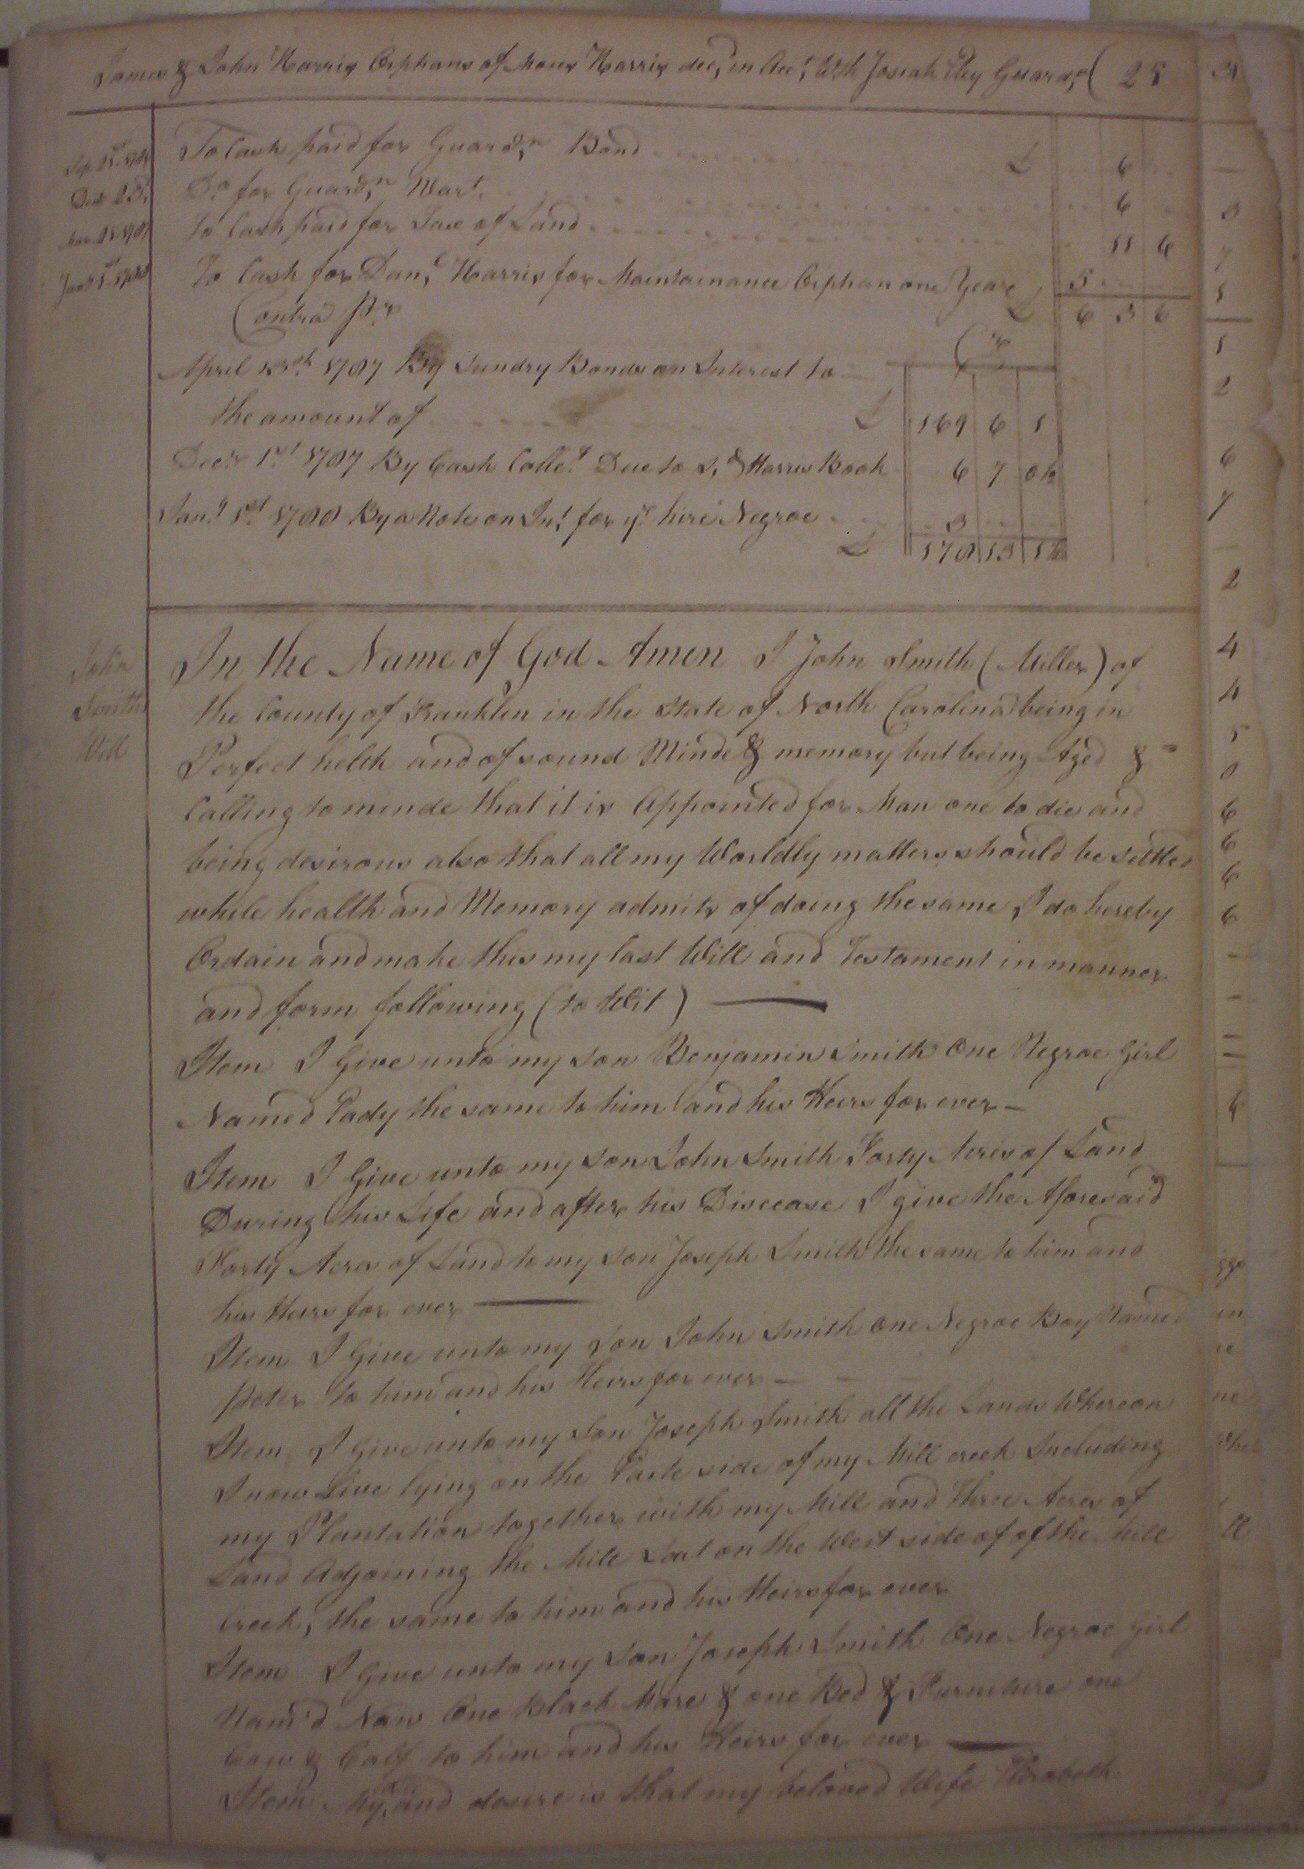 James & John Harris Orphans of Moses Harris dec,d in Acct, With Josiah Guard,n ( 28
To Cash paid for Guard,n Bond £ 6
Do for Guard,n Wart. 6
To Cash paid for Tax of Land 11 6
To Cash for Dan,l Harris for Maintainance Orphan one Year 5
Contra pr £ 6 3 6
Cr
April 13th 1787 By Sundry Bonds on Interest to
the amount of £ 169 6 1
Decr 1st 1787 By Cash Colle,d Due to Harris Book 6 7 0½
Jany 1st 1788 By a Note on Int, for ye hire Negroe 3
£ 178 13 1½
John
Smith
Will
In the Name of God Amen I John Smith (Miller) of
the County of Franklin in the State of North Carolina being in
Perfect helth and of sound Minde & memory but being Aged &
Calling to minde that it is Appointed for Man one to die and
being desirous also that all my Worldly matters should be settled
while health and Memory admits of doing the same I do hereby
Ordain and make this my last Will and Testament in manner
and form following (to Wit)
Item I Give unto my son Benjamin Smith One Negroe Girl
Named the same to him and his Heirs for ever
Item I Give unto my son John Smith Forty Acres of Land
During his Life and after his Discease I give the Aforesaid
Forty Acres of Land to my son Joseph Smith the same to him and
his Heirs for ever
Item I Give unto my son John Smith one Negroe Boy Named
Peter to him and his Heirs for ever
Item I Give unto my Son Joseph Smith all the Lands Whereon
I now Live lying on the side of my Mill creek Including
my Plantation together with my Mill and Three Acres of
Land Adjoining the Mill Seat on the West side of of the Mill
Creek, the same to him and his Heirs for ever
Item I Give unto my Son Joseph Smith One Negroe Girl
Nam'd Nan One Black Mare & one Bed & Furniture one
Cow & Calf to him and his Heirs for ever
Item My and desire is that my beloved Wife